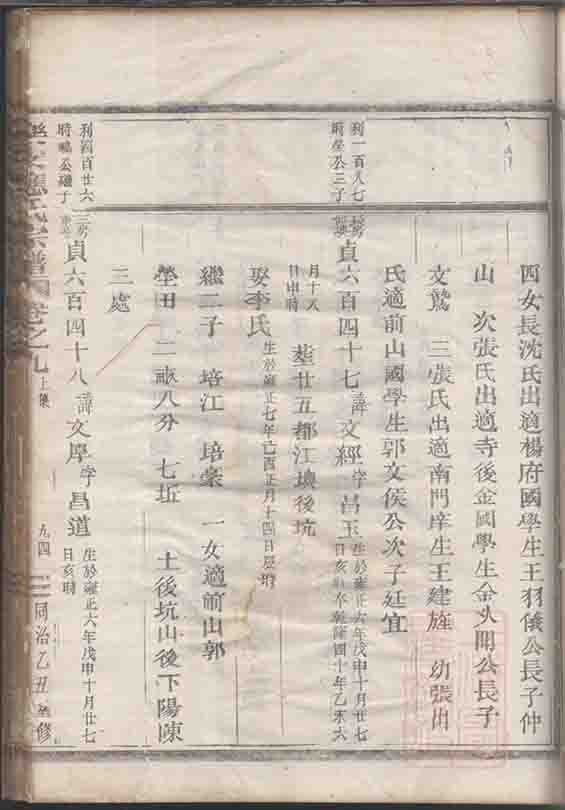 四女長沈氏出適楊府國學生王羽儀公長子仲
山 次張氏出適寺後金國學生金火開公長子
文鷟 三張氏出適南門庠生王建旌 幼張出
氏適前山國學生郭文侯公次子廷宜
列一百八七
時瑩公三子
貞六百四十七 諱文經 字昌玉 生於雍正六年戊申十月廿七
日亥時卒乾隆四十年乙未六
月十八
日申時
塟廿五都江塘後坑
娶李氏 生於雍正七年己酉正月十四日辰時
繼二子 培江 培豪 一女適前山郭
塋田 二畝八分 七坵 土後坑山後下陽陳
三處
列四百廿六
時鳴公 子
三房
貞六百四十八 諱文厚 字昌道 生於雍正六年戊申十月廿七
日亥時
氏宗譜 卷之九 上集 九四 同治乙丑 修